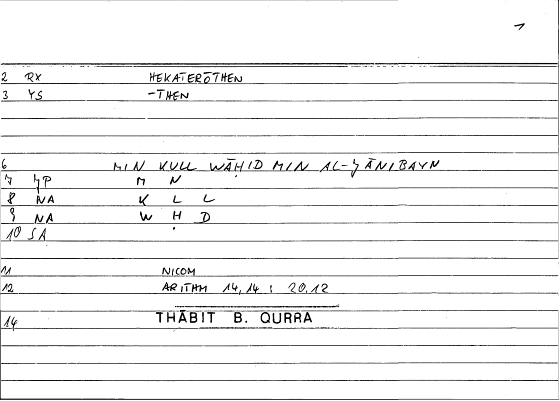 1
2 RX HEKATERŌTHEN
3 YS -THEN
6 MIN KULL WĀḤID MIN AL-JĀNIBAYN
7 JP M N
8 NA K L L
9 NA W Ḥ D
10 SA
11 NICOM
12 ARITHM 14,14 : 20,12
14 THĀBIT B. QURRA